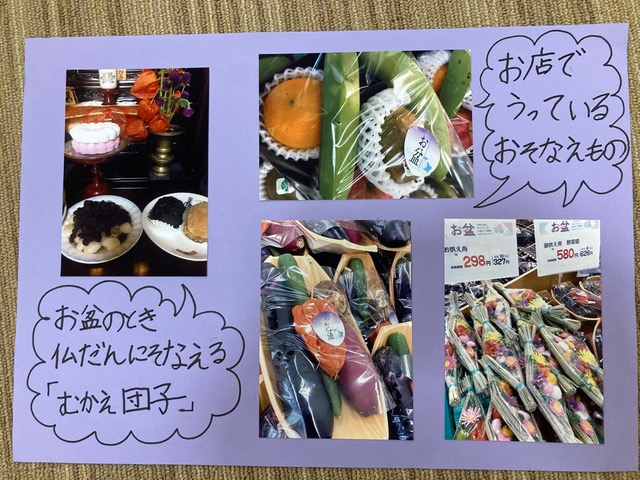 お店で
うっている
おそなえもの
お盆
お盆のとき
仏だんにそなえる
「むかえ団子」
お盆
お盆
お供え用
298円
327円
お盆
御供え用 野菜盛
580円
626円